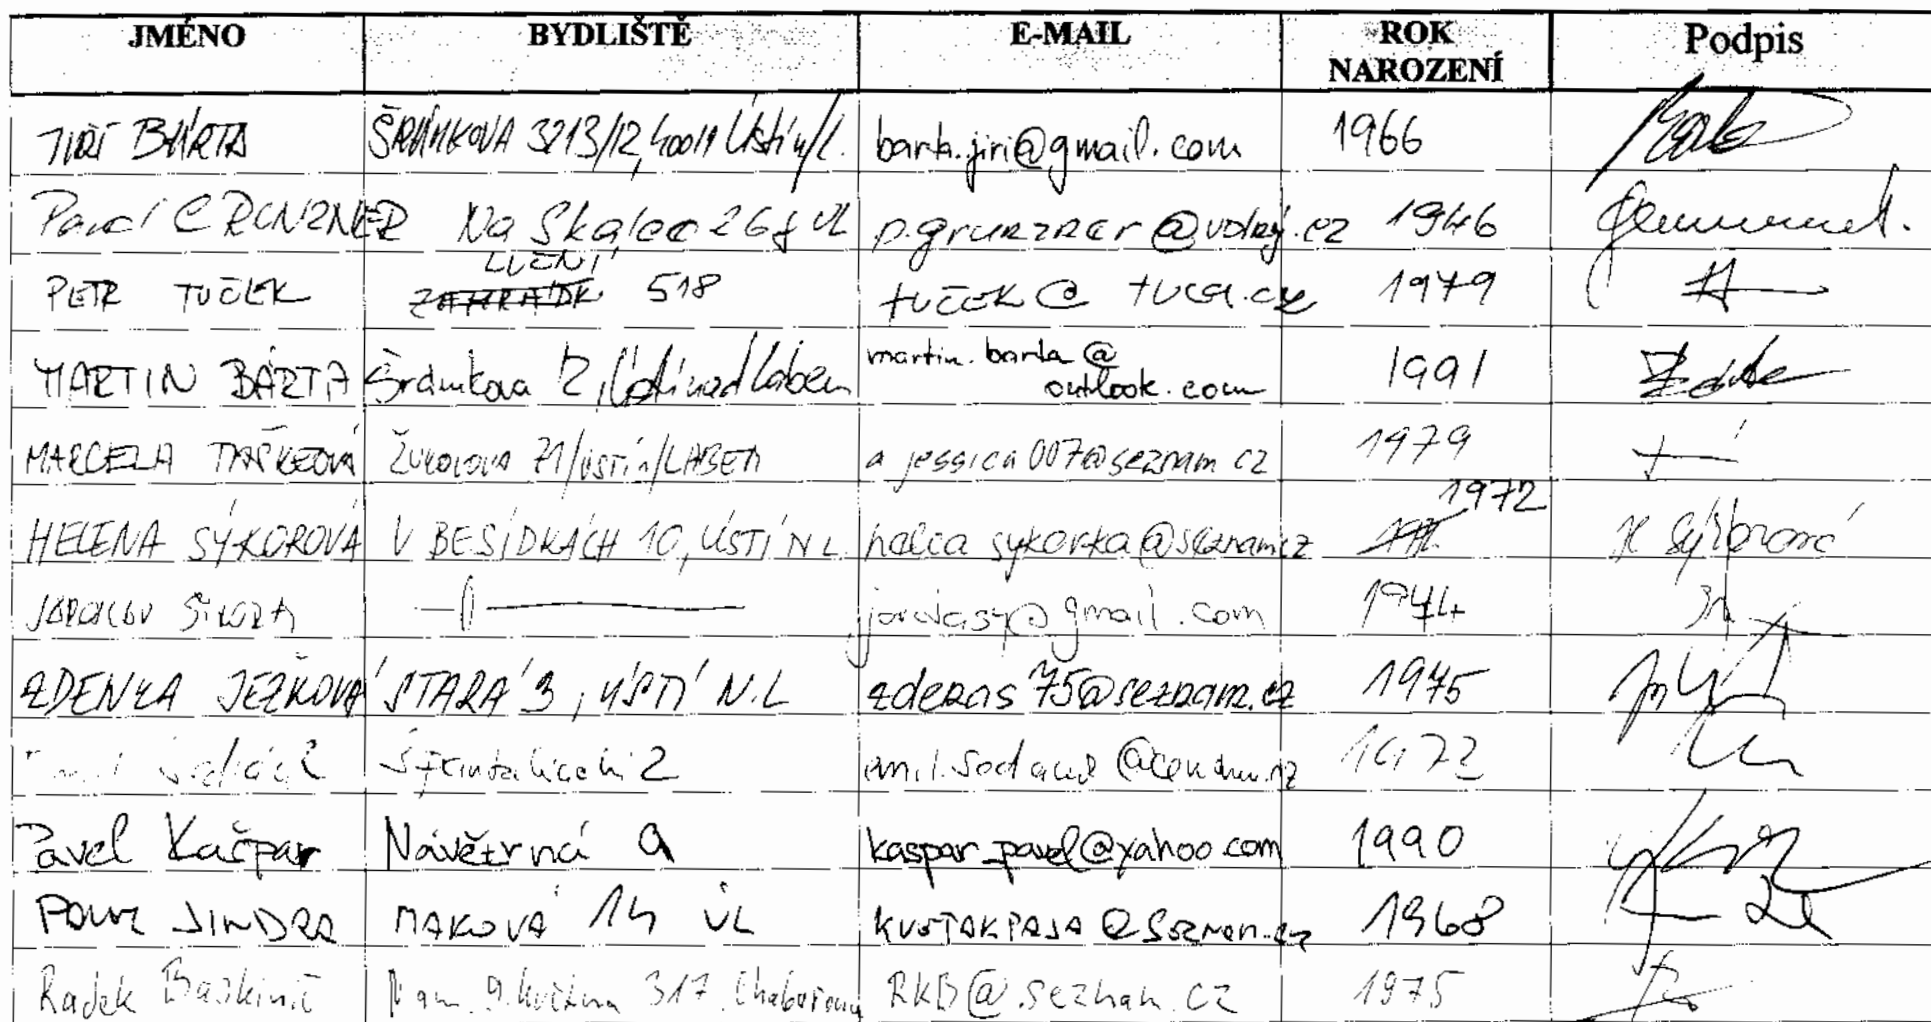 JMÉNO BYDLIŠTĚ E-MAIL ROK NAROZENÍ Podpis
JIŘÍ BÁRTA ŠRÁMKOVA 3213/12, 40011 Ústí n/L. barta.jiri@gmail.com 1966
Pavel GRUNZNER Na Skalce 26 UL p.grunzner@volný.cz 1946
LIČENÍ
PETR TUČEK 518 TUČEK@ 1979
MARTIN BÁRTA Šrámkova 12, Ústí nad Labem martin.barta@
outlook.com 1991
MARCELA 71/ÚSTÍ n/LABEM a jessica007@seznam cz 1979
1972
HELENA SÝKOROVÁ V BESÍDKÁCH 10, ÚSTÍ N L helca sykorka@seznam.cz H Sýkorová
JAROSLAV SÝKORA jardasy@gmail.com 1944
ZDENKA JEŽKOVÁ STARÁ 3, ÚSTÍ N.L zdenas75@seznam.cz 1975
2 1972
Pavel Kašpar Návětrná 9 kaspar_pavel@yahoo.com 1990
PAVEL JINDRA MAKOVÁ 14 ÚL KVETAKPAJA@Seznam.cz 1968
Radek Nám. 9. května 317 Chabařovice RKB@.seznam.cz 1975